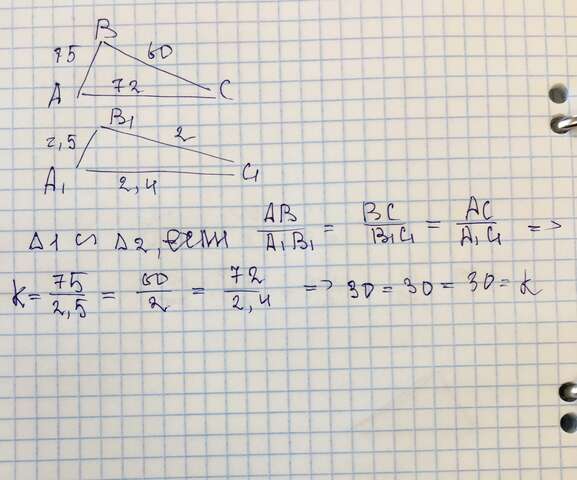 B
75 60
A 72 C
B₁
2,5 2
A₁ 2,4 C₁
Δ1 ∽ Δ2, если AB/A₁B₁ = BC/B₁C₁ = AC/A₁C₁ =>
K = 75/2,5 = 60/2 = 72/2,4 => 30 = 30 = 30 = K